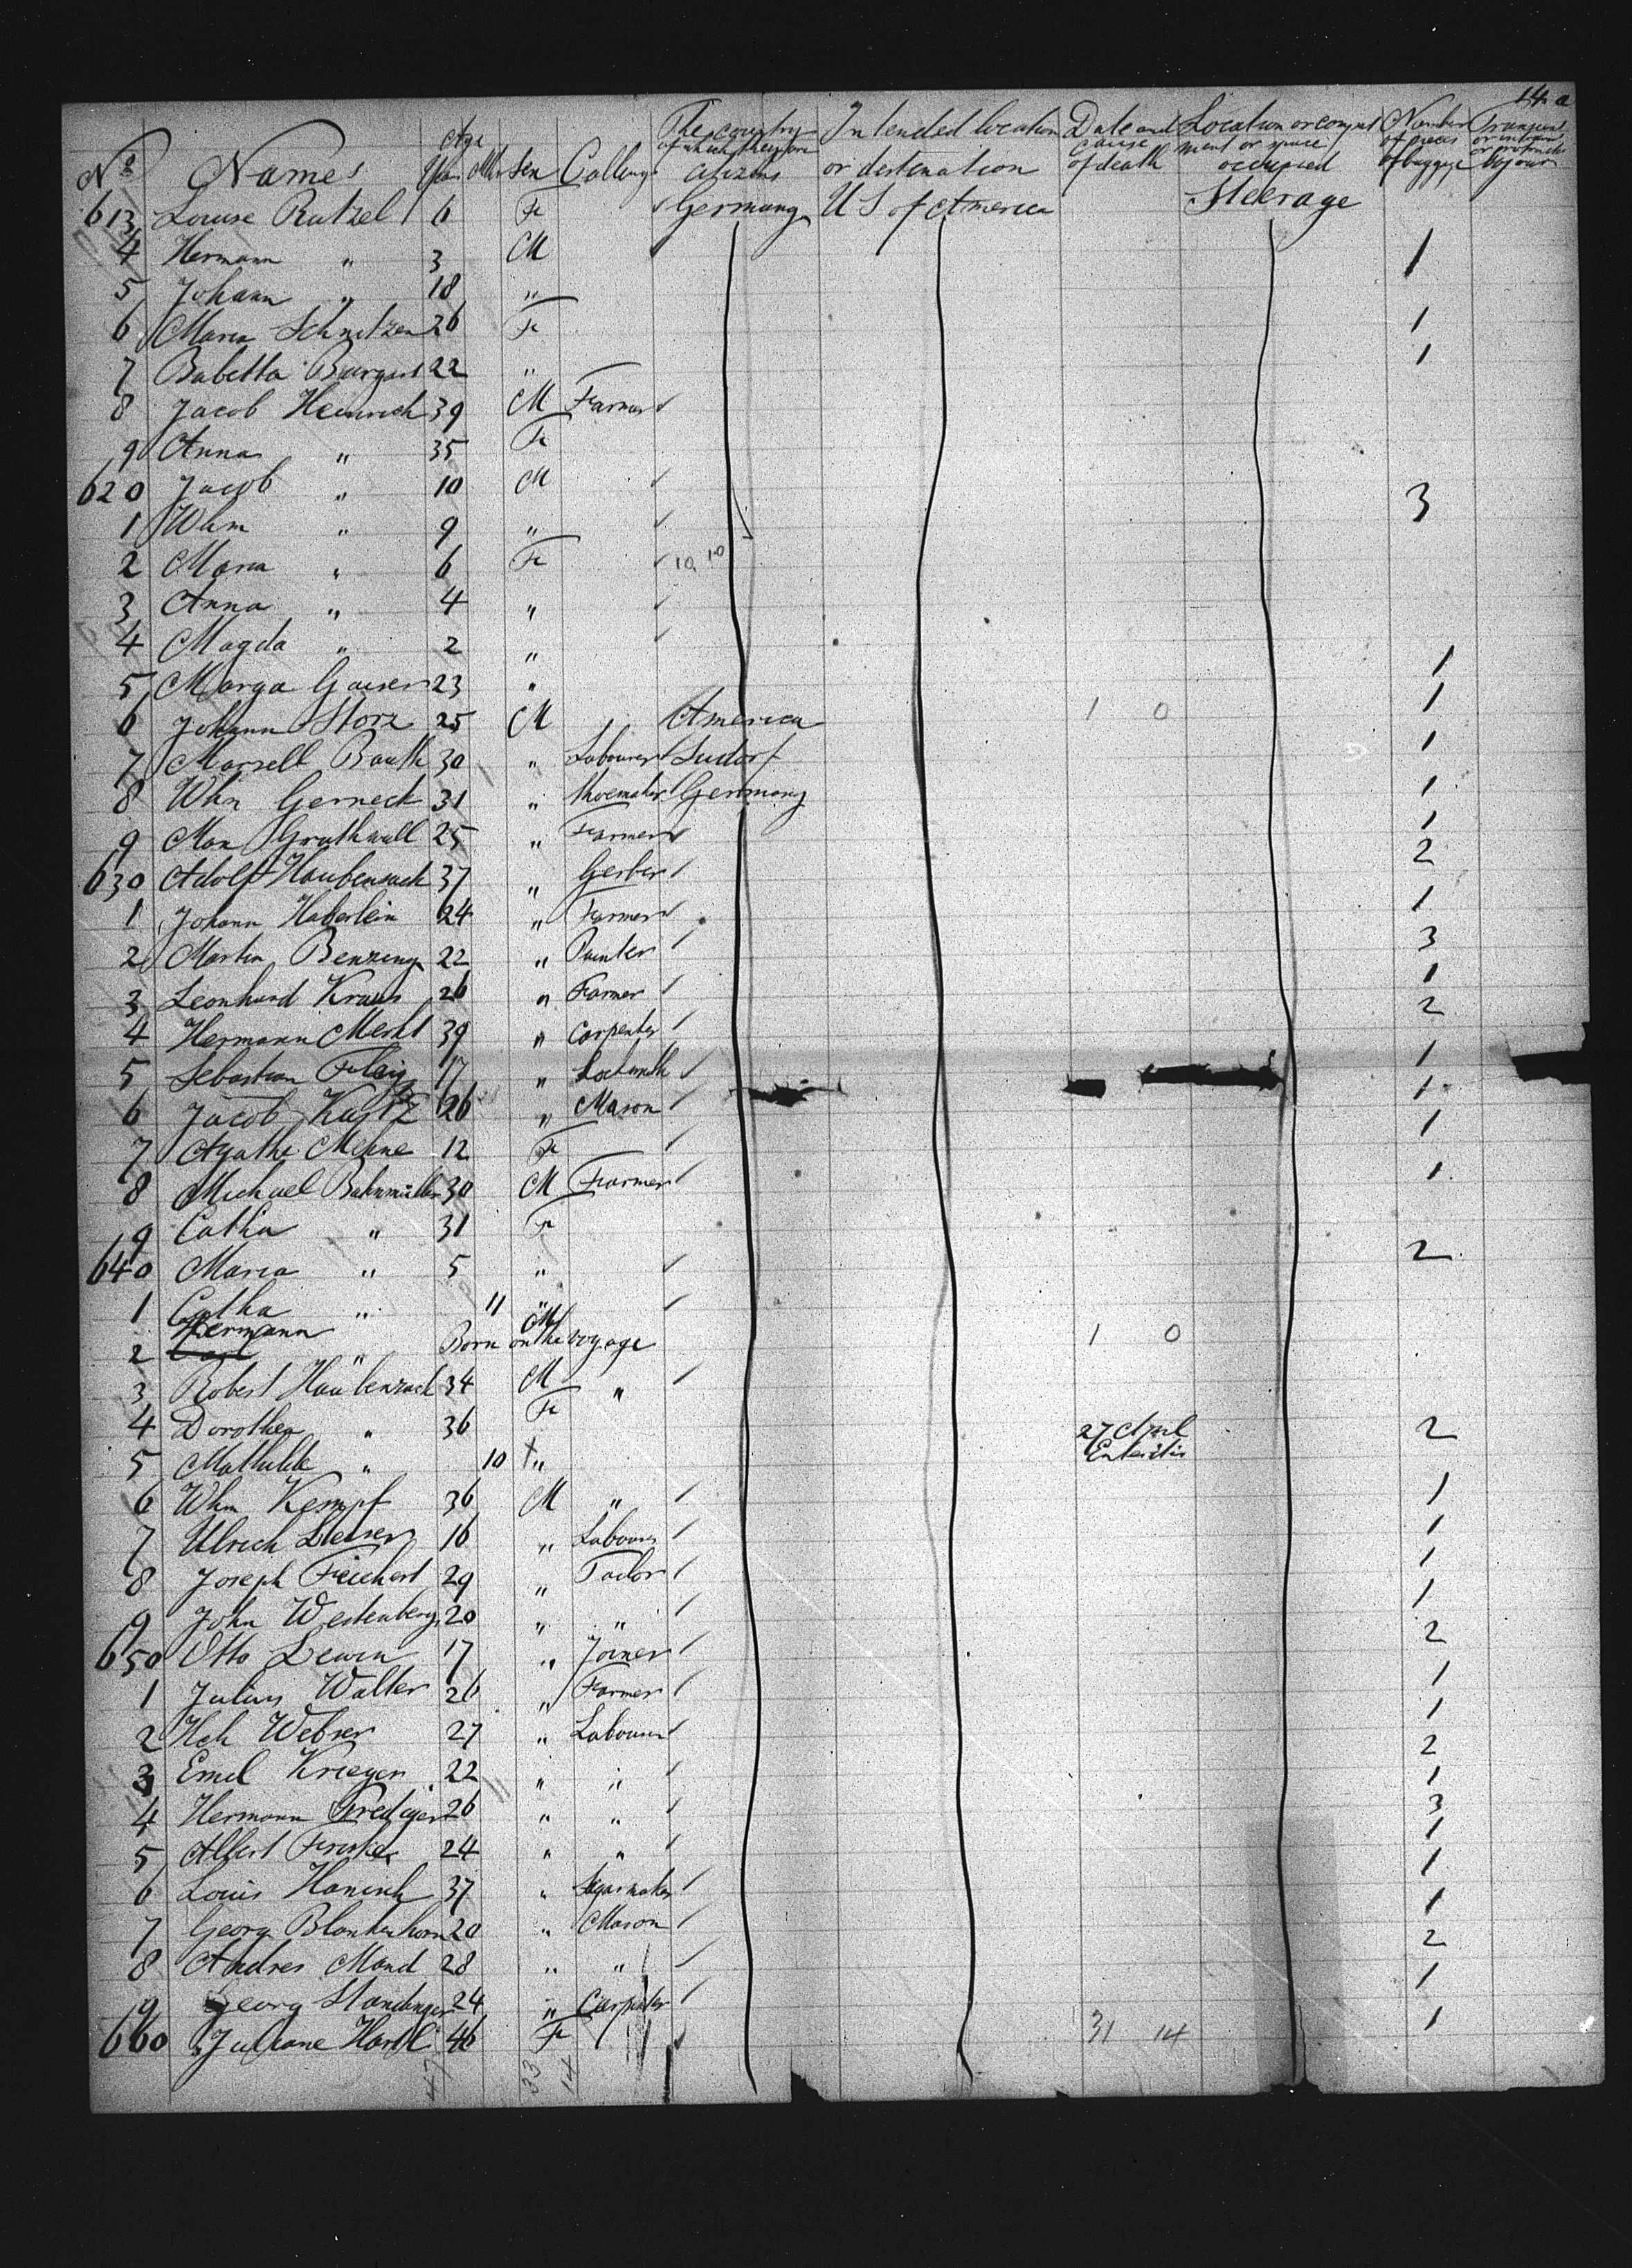 14 a
No Names Age Years Mths Sex Calling The country of which they are citizens Intended location or destination Date and cause of death Location or compartment or space occupied Number of pieces of baggage
613 Louise Rutzel 6 F Germany U S of America Steerage
4 Hermann " 3 M 1
5 Johann " 18 "
6 Maria Schnitzer 26 F 1
7 Babetta Burgert 22 " 1
8 Jacob Heinrich 39 M Farmer
9 Anna " 35 F
620 Jacob " 10 M 3
1 Whm " 9 "
2 Maria " 6 F 10 10
3 Anna " 4 "
4 Magda " 2 "
5 Marga Gaiser 23 " 1
6 Johann Storz 25 M America 1 0 1
7 Marsell Bauth 30 " Labourer Sudorf 1
8 Whn Gerneck 31 " Shoemaker Germany 1
9 Max Gruthwall 25 " Farmer 1
630 Adolf Haubensack 37 " Gerber 2
1 Johann Haberlein 24 " Farmer 1
2 Martin Benzing 22 " Painter 3
3 Leonhard Kraus 26 " Farmer 1
4 Hermann Merkt 39 " Carpenter 2
5 Sebastian Flaig 17 " Locksmith 1
6 Jacob Kurtz 26 " Mason 1
7 Agathe Mehne 12 F 1
8 Michael Bahnmüller 30 M Farmer 1
9 Catha " 31 F
640 Maria " 5 " 2
1 Catha " 11 "
2 Hermann " Born on the voyage M 1 0
3 Robert Haubensack 34 M "
4 Dorothea " 36 F 2
5 Mathilde " 10 † " 27 April Enteritis
6 Whm Kempf 36 M " 1
7 Ulrich Lieser 16 " Labourer 1
8 Joseph Feichert 29 " Tailor 1
9 John Westenberg 20 " " 1
650 Otto Lewin 17 " Joiner 2
1 Julius Walter 26 " Farmer 1
2 Hch Webser 27 " Labourer 1
3 Emil Krieger 22 " " 2
4 Hermann Prediger 26 " " 1
5 Albert Fricker 24 " " 3
6 Louis Hanisch 37 " Segarmaker 1
7 Georg Blankenhorn 20 " Mason 1
8 Andres Mand 28 " " 2
9 Georg Standinger 24 " Carpenter 1
660 Juliane Hartl 46 F 31 14 1
47 33 14